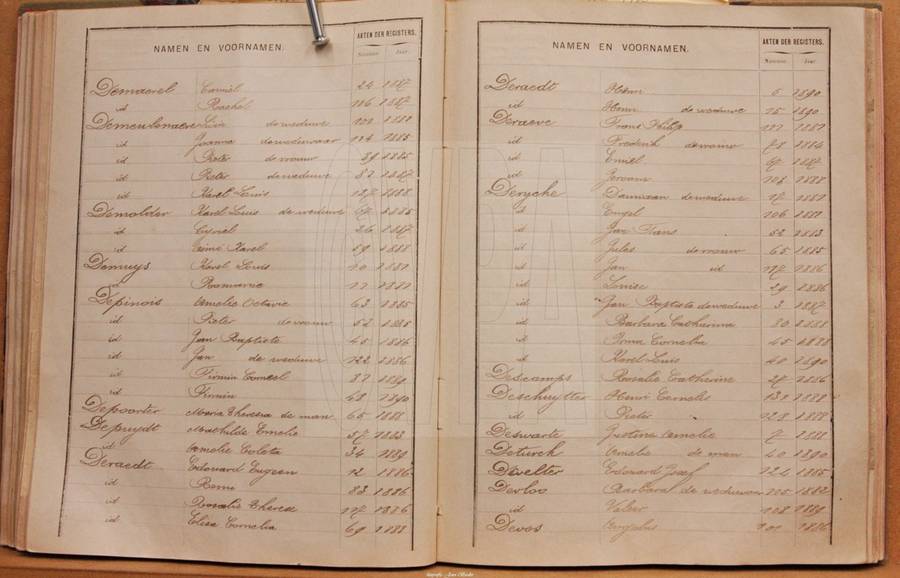 NAMEN EN VOORNAMEN.
AKTEN DER REGISTERS.
Nummer. Jaar.
Demaerel Camiel 24 1887
id Rachel 106 1887
Demeulenaere de weduwe 1881
id Joanna de weduwaar 114 1885
id Pieter de vrouw 39 1885
id Pieter de weduwe 82 1887
id Karel Louis 127 1888
Demolder Karel Louis de weduwe 1885
id Cyriel 26 1887
id Karel 59 1888
Demuys Karel Louis 10 1881
id 11 1881
Depinois Amelie Octavie 63 1885
id Pieter de vrouw 52 1885
id Jan Baptiste 45 1886
id Jan de weduwe 122 1886
id Firmin Corneel 37 1889
id Firmin 68 1890
Depoorter Maria Theresa de man 65 1888
Depruydt Mathilde Emelie 57 1883
id Amelie Coleta 34 1889
Deraedt Edouard Eugeen 12 1886
id Remi 83 1886
id Rosalie Therese 117 1886
id Elisa Cornelia 69 1888
NAMEN EN VOORNAMEN.
AKTEN DER REGISTERS.
Nummer. Jaar.
Deraedt Henri 5 1890
id Henri de weduwe 15 1890
Deraeve Frans Philip 1881
id Frederik de vrouw 78 1884
id Emiel 67 1887
id Jeroom 103 1888
Derycke Damiaan de weduwe 17 1881
id Engel 106 1881
id Jan Frans 52 1883
id Jules de vrouw 65 1885
id Jan id 117 1886
id Louise 29 1886
id Jan Baptiste de weduwe 3 1887
id Barbara Catharina 80 1888
id Irma Cornelia 45 1888
id Karel Louis 40 1890
Descamps Rosalie Catherine 27 1886
Deschuytter Henri Cornelis 132 1888
id Pieter 128 1888
Deswarte Justina Amelie 7 1888
Deturck Amelie de man 40 1890
Develter Edouard Josef 124 1885
Derloo Barbara de weduwe 105 1882
id 108 1889
Devos Angelus 101 1886